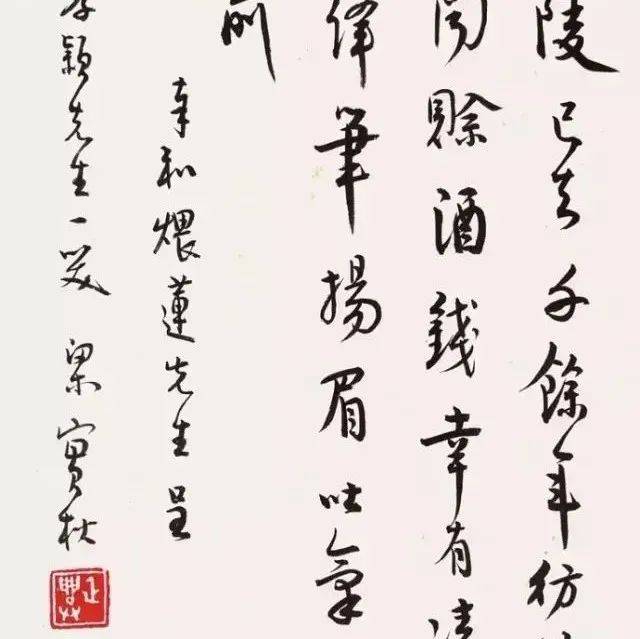 陵已去千餘年彷
賒酒錢幸有
筆揚眉吐氣
前
奉和煨蓮先生呈
穎先生一笑 梁實秋